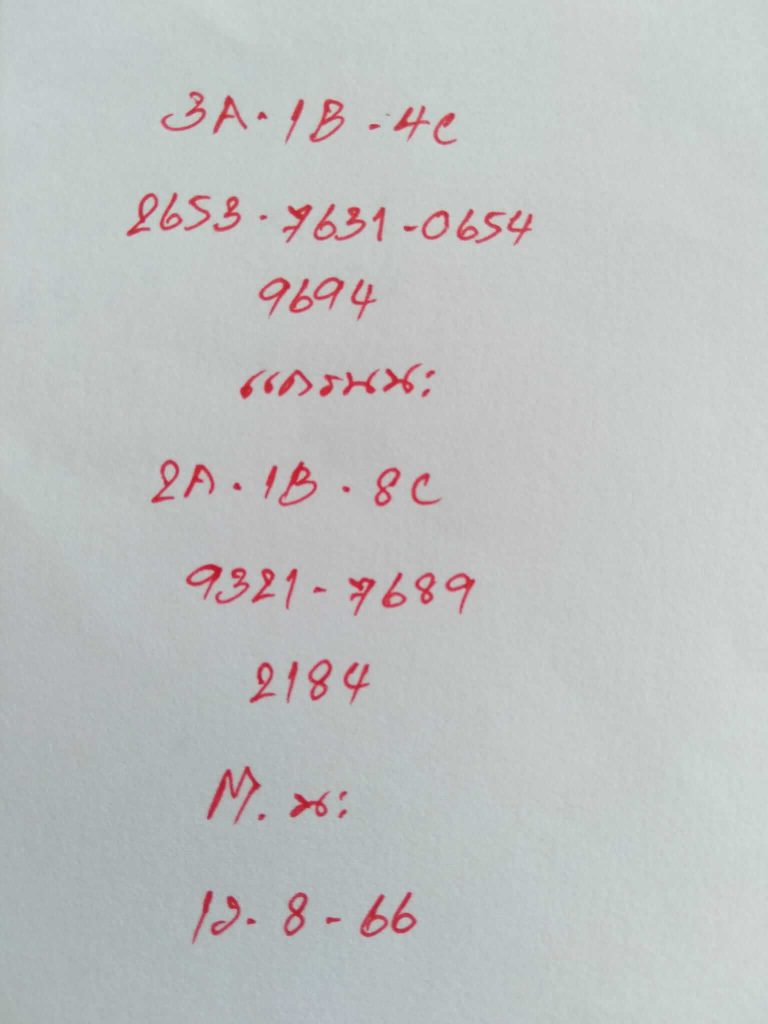 3A.1B.4C
2653.7631-0654
9694
2A.1B.8C
9321-7689
2184
M.
12-8-66